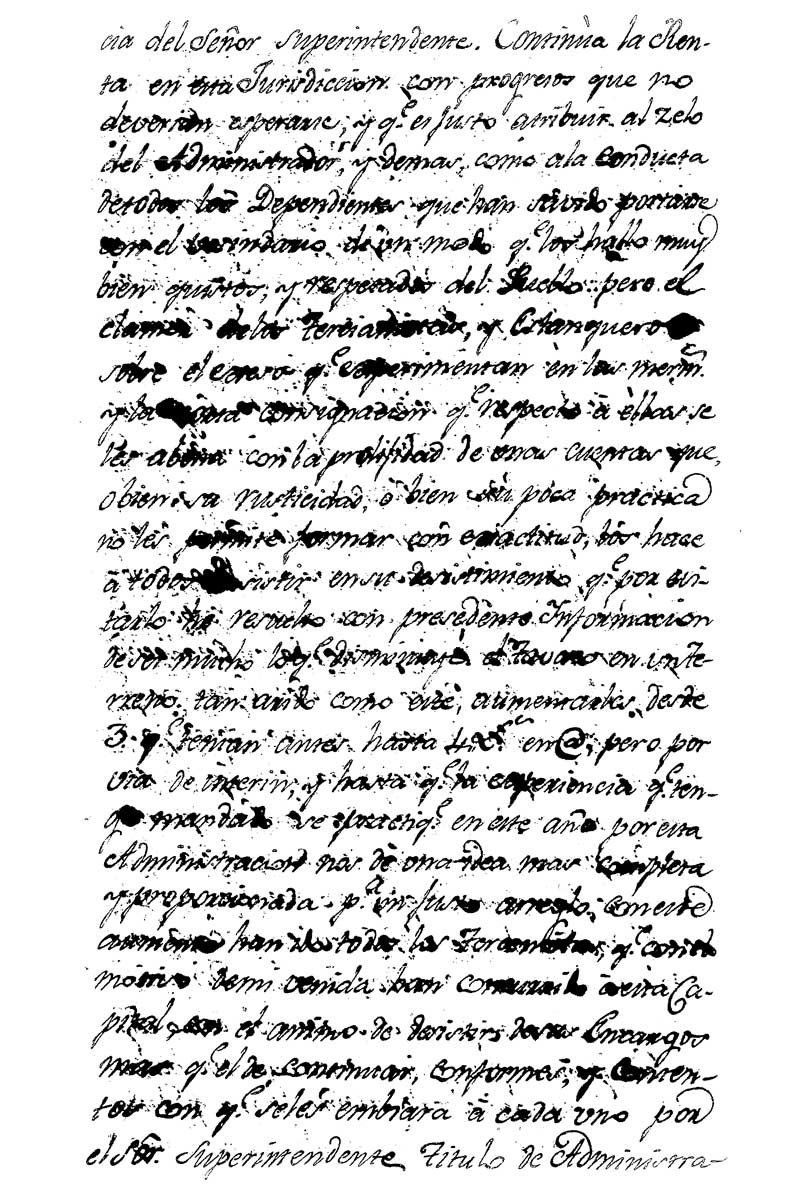 cia del Señor Superintendente. Continùa la Ren-
ta en esta Jurisdiccion con progresos que no
deverian esperarse, y q.e es justo atribuir al Zelo
del Administrador, y demas, como a la conducta
de todos los Dependientes que han savido portarse
con el vecindario de un modo q.e los hallo muy
bien quistos, y respetados del Pueblo: pero el
clamor de los Tercianistas, y Estanqueros
sobre el exceso q.e experimentan en las merm.s
y la consignacion q.e respecto à ellas se
les abona con la prolifidad de unas cuentas que,
o bien sa rusticidad, ò bien su poca practica
no les permite formar con exactitud, los hace
à todos sistir en su desistimiento, q.e por evi-
tarlo he resuelto con presedente Informacion
de ser mucho lo q.e disminuye el Tavaco en un Te-
rreno tan arido como este, aumentarles desde
3. q.e tenian antes hasta 4. en @, pero por
via de interin, y hasta q.e la experiencia q.e ten-
go mandado se practiq.e en este año por esta
Administracion nos dè una idea mas completa
y proporcionada p.a un justo arreglo; con este
aumento han ido todos los y con el
motivo de mi venida han à esta Ca-
pital, con el animo de desistirse de sus Encargos
mas q.e el de continuar, conformes, y Conten-
tos con q.e se les embiarà à cada uno por
el Sõr. Superintendente Titulo de Administra-